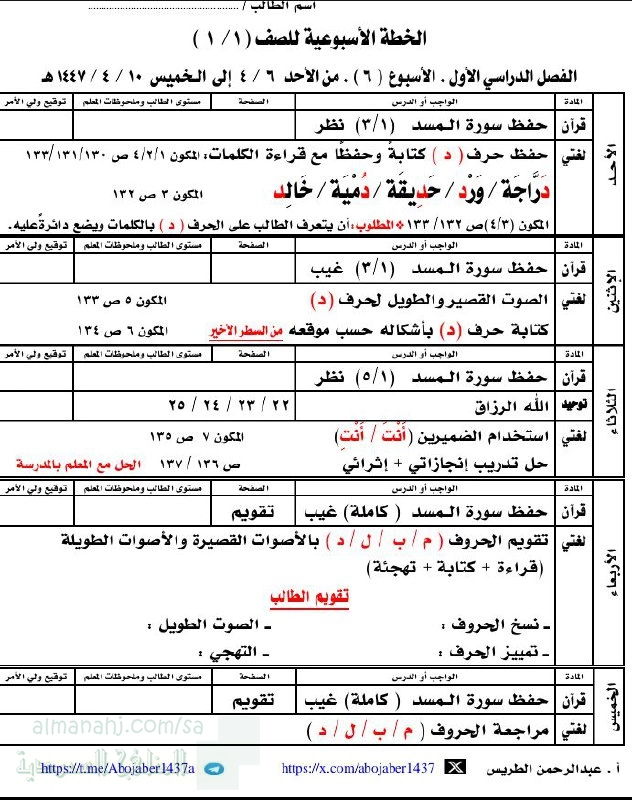 اسم الطالب / ......................................................
الخطة الأسبوعية للصف ( ١ / ١ )
الفصل الدراسي الأول . الأسبوع ( ٦ ) . من الأحد ٦ / ٤ إلى الخميس ١٠ / ٤ / ١٤٤٧ هـ
الأحد
المادة الواجب أو الدرس الصفحة مستوى الطالب وملحوظات المعلم توقيع ولي الأمر
قرآن حفظ سورة المسد (٣/١) نظر
لغتي حفظ حرف ( د ) كتابةً وحفظًا مع قراءة الكلمات: المكون ٤/٢/١ ص ١٣٣/١٣١/١٣٠
دَرَّاجَة / وَرْد / حَدِيقَة / دُمْيَة / خَالِد المكون ٣ ص ١٣٢
المكون (٤/٣) ص ١٣٢ / ١٣٣ ❖ المطلوب: أن يتعرف الطالب على الحرف ( د ) بالكلمات ويضع دائرةً عليه.
الإثنين
المادة الواجب أو الدرس الصفحة مستوى الطالب وملحوظات المعلم توقيع ولي الأمر
قرآن حفظ سورة المسد (٣/١) غيب
لغتي الصوت القصير والطويل لحرف (د) المكون ٥ ص ١٣٣
كتابة حرف (د) بأشكاله حسب موقعه من السطر الأخير المكون ٦ ص ١٣٤
الثلاثاء
المادة الواجب أو الدرس الصفحة مستوى الطالب وملحوظات المعلم توقيع ولي الأمر
قرآن حفظ سورة المسد (٥/١) نظر
توحيد الله الرزاق ٢٢ / ٢٣ / ٢٤ / ٢٥
لغتي استخدام الضميرين (أَنْتَ / أَنْتِ) المكون ٧ ص ١٣٥
حل تدريب إنجازاتي + إثرائي ص ١٣٦ / ١٣٧ الحل مع المعلم بالمدرسة
الأربعاء
المادة الواجب أو الدرس الصفحة مستوى الطالب وملحوظات المعلم توقيع ولي الأمر
قرآن حفظ سورة المسد ( كاملة) غيب تقويم
لغتي تقويم الحروف ( م / ب / ل / د ) بالأصوات القصيرة والأصوات الطويلة
(قراءة + كتابة + تهجئة)
تقويم الطالب
ـ نسخ الحروف : ـ الصوت الطويل :
ـ تمييز الحرف : ـ التهجي :
الخميس
المادة الواجب أو الدرس الصفحة مستوى الطالب وملحوظات المعلم توقيع ولي الأمر
قرآن حفظ سورة المسد ( كاملة) غيب تقويم
لغتي مراجعة الحروف ( م / ب / ل / د )
almanahj.com/sa
المناهج السعودية
أ . عبدالرحمن الطريس https://x.com/abojaber1437 https://t.me/Abojaber1437a